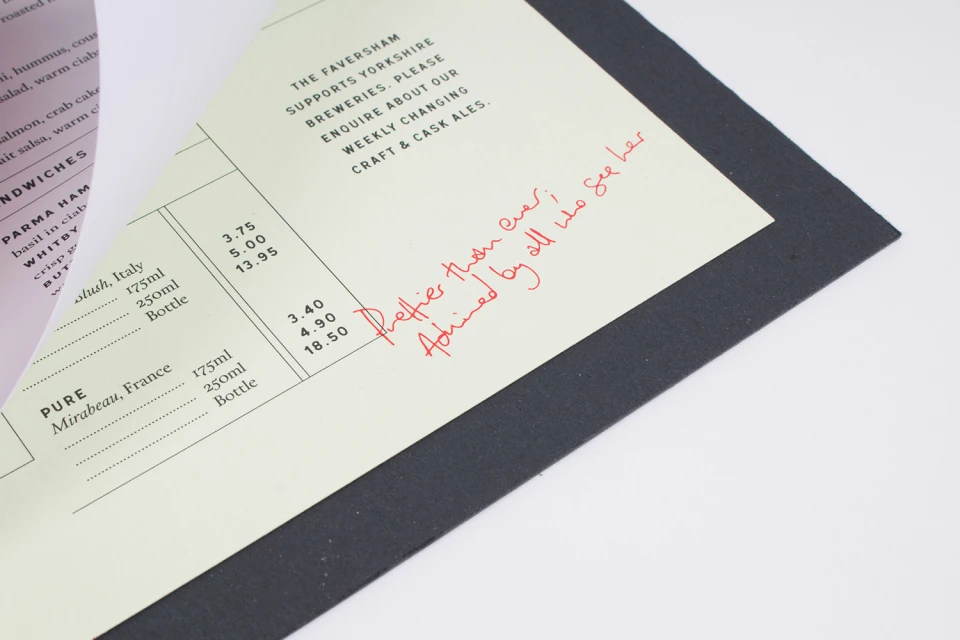 roasted
hummus, cous
salad, warm ciab
salmon, crab cake
salsa, warm
PARMA HAM
basil in ciab
WHITBY
crisp
THE FAVERSHAM
SUPPORTS YORKSHIRE
BREWERIES. PLEASE
ENQUIRE ABOUT OUR
WEEKLY CHANGING
CRAFT & CASK ALES.
Prettier than ever;
Admired by all who see her
Blush, Italy
175ml 3.75
250ml 5.00
Bottle 13.95
PURE
Mirabeau, France
175ml 3.40
250ml 4.90
Bottle 18.50